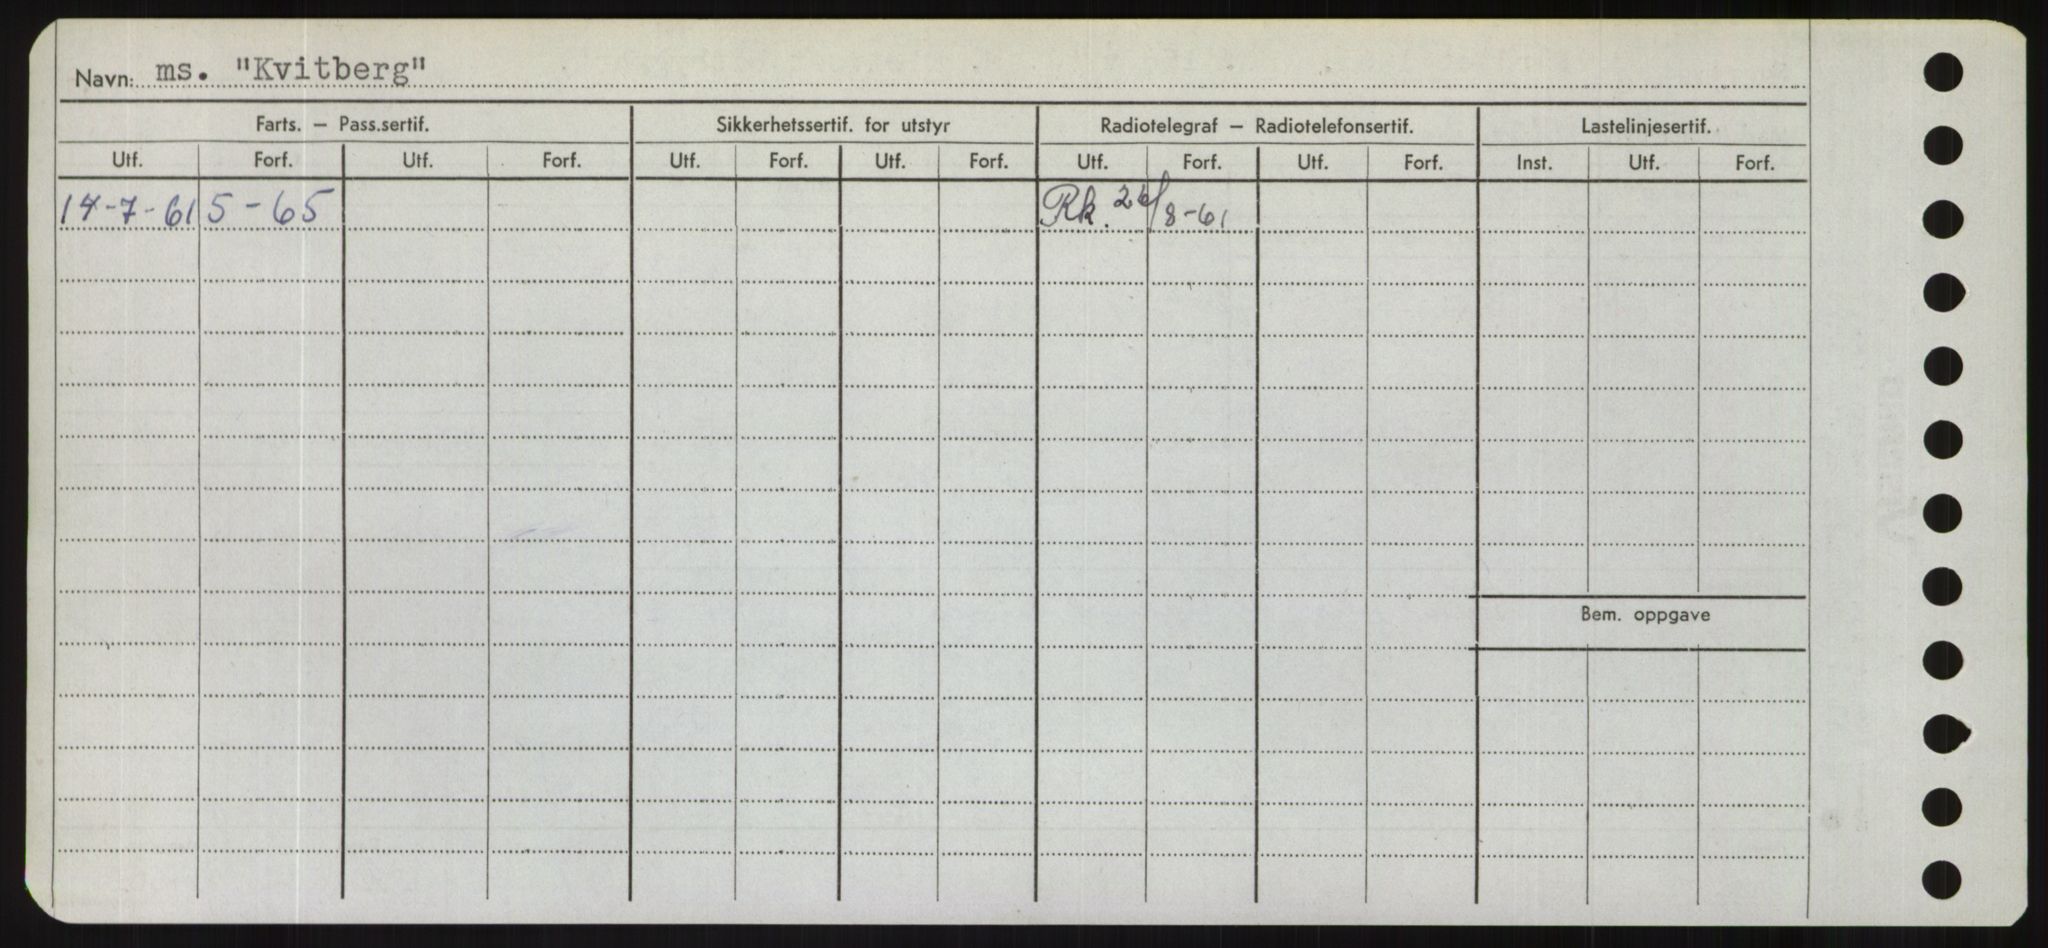 Navn: ms. "Kvitberg"
Farts. — Pass.sertif. Sikkerhetssertif. for utstyr Radiotelegraf — Radiotelefonsertif. Lastelinjesertif.
Utf. Forf. Utf. Forf. Utf. Forf. Utf. Forf. Utf. Forf. Utf. Forf. Inst. Utf. Forf.
5-65 Rk. 26/8-61
Bem. oppgave